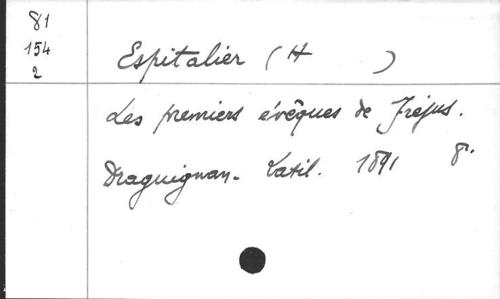 81
154
2
Espitalier (H )
Les premiers évêques de Fréjus.
Draguignan. Latil. 1891 8°.